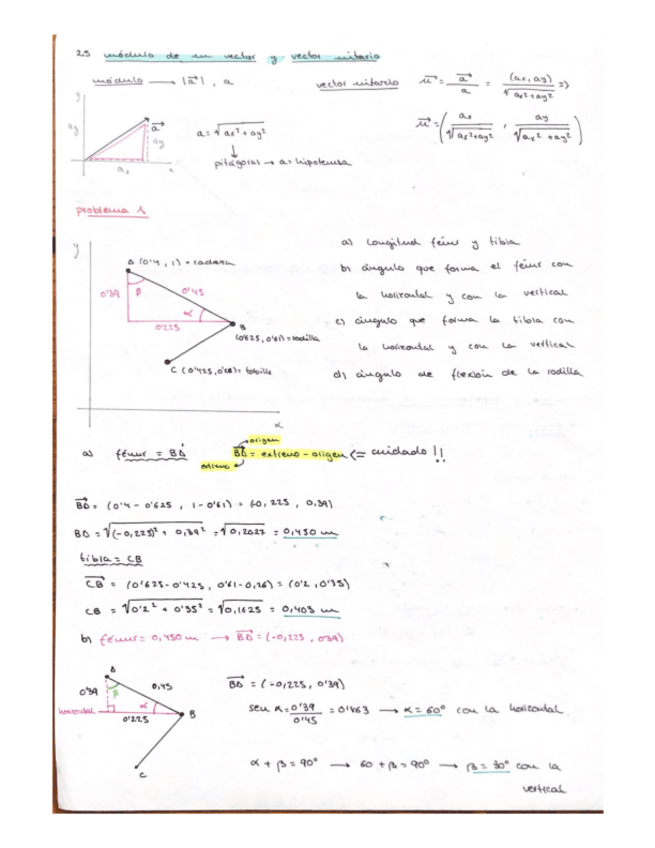 2.5 módulo de un vector y vector unitario
módulo ⟶ |a⃗|, a
vector unitario u⃗ = a⃗/a = (ax, ay)/√(ax²+ay²) ⇒
y
ay
a⃗
ay
ax
x
a = √(ax² + ay²)
↓
pitágoras → a = hipotenusa
u⃗ = (ax/√(ax²+ay²), ay/√(ax²+ay²))
problema 1
y
A (0'4, 1) = cadera
0'39
β
0'45
α
0'225
B
(0'625, 0'61) = rodilla
C (0'425, 0'26) = tobillo
x
a) longitud fémur y tibia
b) ángulo que forma el fémur con
la horizontal y con la vertical
c) ángulo que forma la tibia con
la horizontal y con la vertical
d) ángulo de flexión de la rodilla
a) fémur = BA
origen
BA⃗ = extremo - origen ⇐ cuidado !!
extremo
BA⃗ = (0'4 - 0'625, 1 - 0'61) = (-0,225, 0,39)
BA = √((-0,225)² + 0,39²) = √0,2027 = 0,450 m
tibia = CB
CB⃗ = (0'625-0'425, 0'61-0,26) = (0'2, 0'35)
CB = √(0'2² + 0'35²) = √0,1625 = 0,403 m
b) fémur = 0,450 m ⟶ BA⃗ = (-0,225, 0'39)
A
0'39
β
0,45
horizontal
α
B
0'225
C
BA⃗ = (-0,225, 0'39)
sen α = 0'39/0'45 = 0'863 ⟶ α = 60° con la horizontal
α + β = 90° ⟶ 60 + β = 90° ⟶ β = 30° con la
vertical